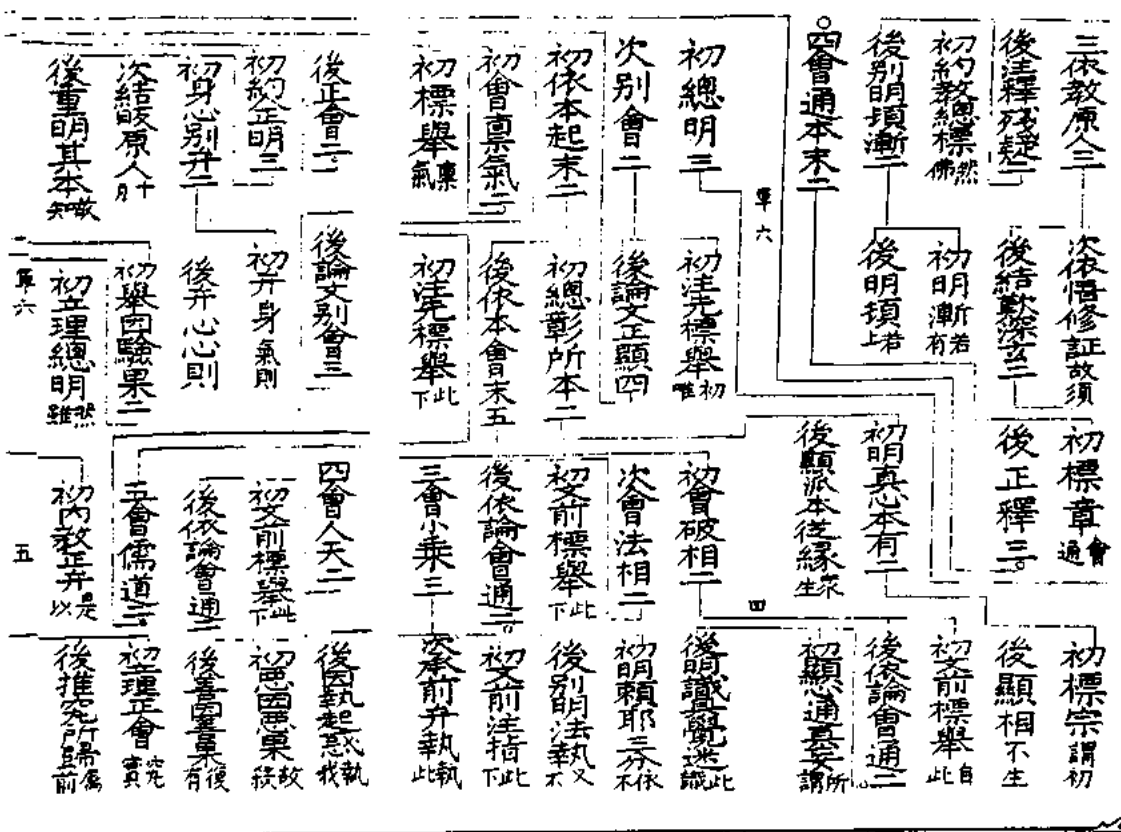 三依教原人三
後注釋殘疑二
初約教總標然佛
後別明頓漸二
四會通本末二
初總明三
次別會二
初依本起末二
初會稟氣二
初標舉稟氣
後正會二
初約正明三
初身心別弁二
次結歸原人
後重明其本故知
次依悟修証故須
後結歎深玄二
初明漸若有
後明頓若上
單六
初注先標舉初唯
後論文正顯四
初總彰所本二
後依本會末五
初注先標舉此下
後論文別會三
初弁身氣則
後弁心心則
初舉因驗果二
初立理總明然雖
單六
初標章會通
後正釋三
初明真心本有二
後顯派本從緣眾生
初會破相二
次會法相二
初文前標舉此下
後依論會通二
三會小乘三
四會人天二
初文前標舉此下
後依論會通二
五會儒道三
初內教正弁是以
五
初標宗謂初
後顯相不生
初文前標舉自此
後依論會通二
初顯通真妄所謂
四
後明識覺迷此識
初明賴耶三分依不
後別明法執又不
初文前注指此下
次承前弁執執此
後因執起惑執我
初惡因惡果故
後善因善果復有
初立理正會究實
後推究所屬